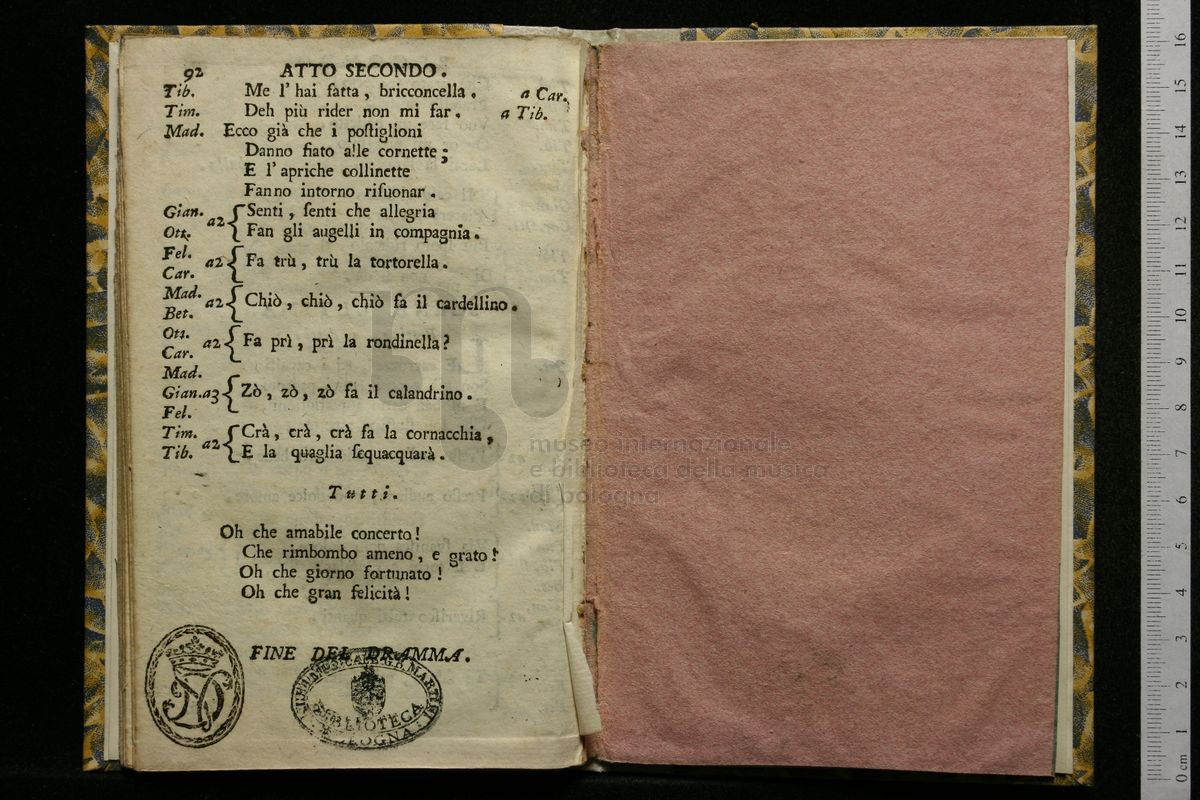 92 ATTO SECONDO.
Tib. Me l' hai fatta, bricconcella. a Car.
Tim. Deh più rider non mi far. a Tib.
Mad. Ecco già che i poſtiglioni
Danno fiato alle cornette;
E l' apriche collinette
Fanno intorno riſuonar.
Gian. Ott. a2 { Senti, ſenti che allegria
Fan gli augelli in compagnia.
Fel. Car. a2 { Fa trù, trù la tortorella.
Mad. Bet. a2 { Chiò, chiò, chiò fa il cardellino.
Ott. Car. a2 { Fa prì, prì la rondinella?
Mad. Gian. Fel. a3 { Zò, zò, zò fa il calandrino.
Tim. Tib. a2 { Crà, crà, crà fa la cornacchia,
E la quaglia ſequacquarà.
Tutti.
Oh che amabile concerto!
Che rimbombo ameno, e grato!
Oh che giorno fortunato!
Oh che gran felicità!
FINE DEL DRAMMA.
MUSICALE G.B. MARTINI
BIBLIOTECA
BOLOGNA
museo internazionale
e biblioteca della musica
di bologna
0 cm 1 2 3 4 5 6 7 8 9 10 11 12 13 14 15 16